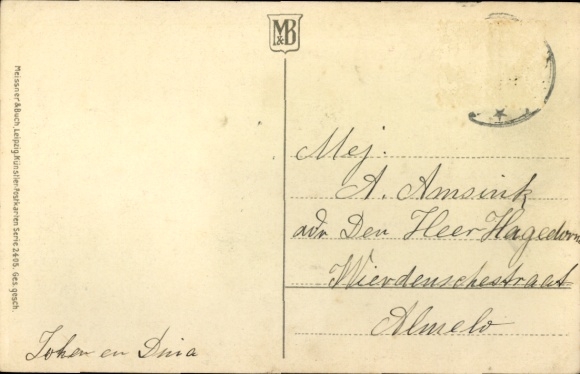 M&B
Meissner & Buch, Leipzig, Künstler-Postkarten Serie 2405. Ges. gesch.
Mej.
A. Amsink
adr Den Heer Hagedoorn
Wierdenschestraat
Almelo
Johan en Dina